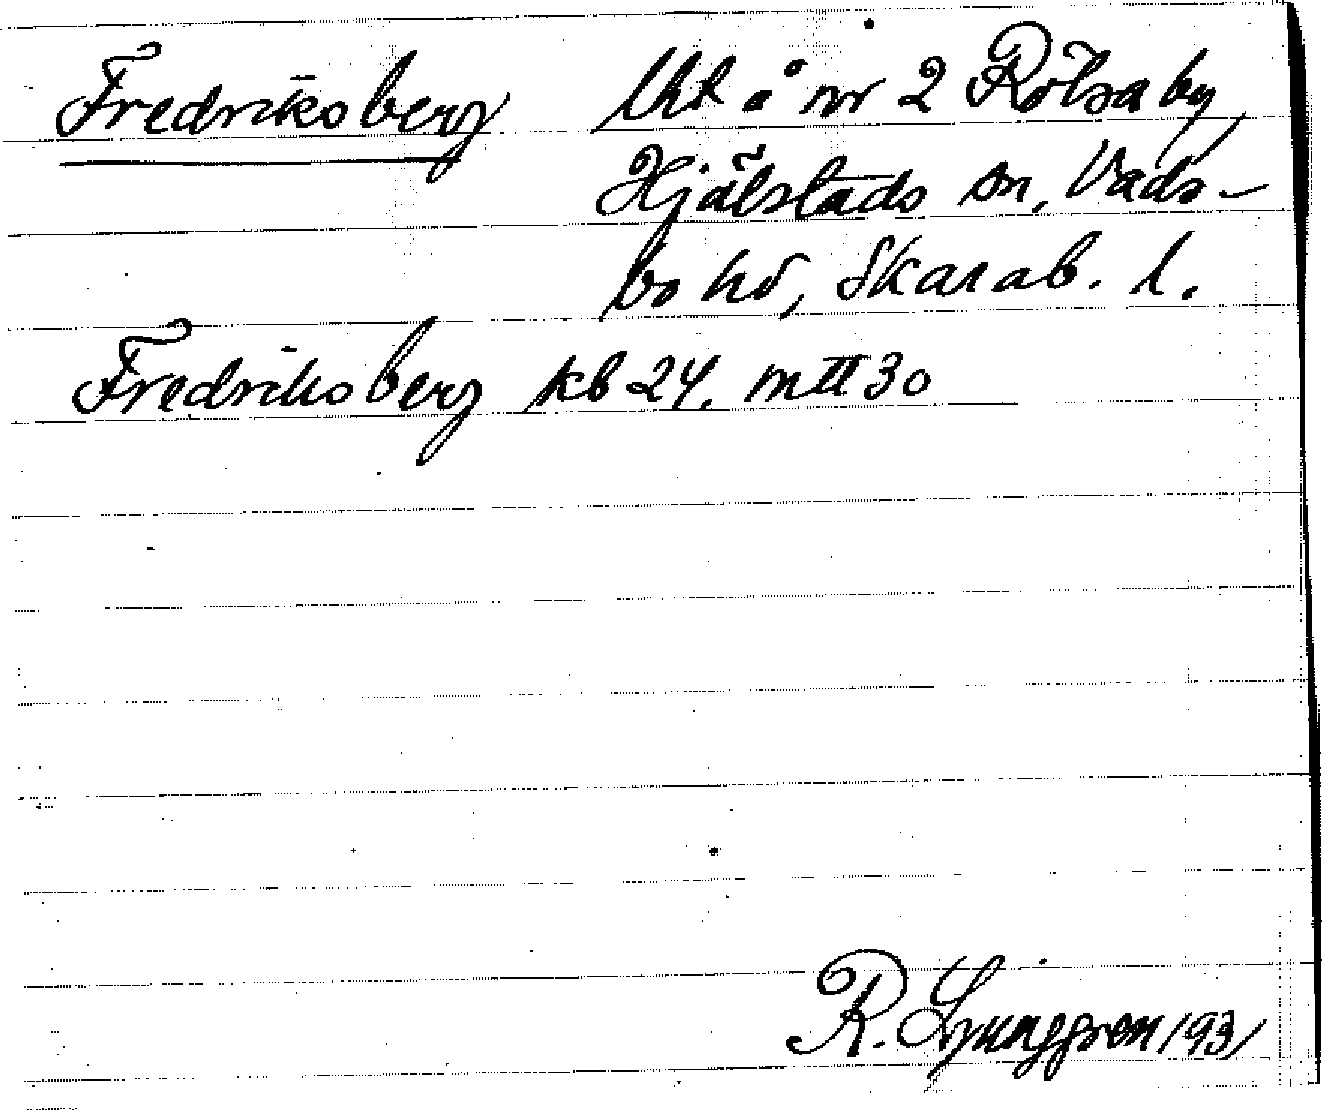 Fredriksberg Lht å nr 2 Rölsa by
Hjälstads sn, Vads-
bo hd, Skarab. l.
Fredriksberg kb 24. mtl 30
R. Ljunggren 1931